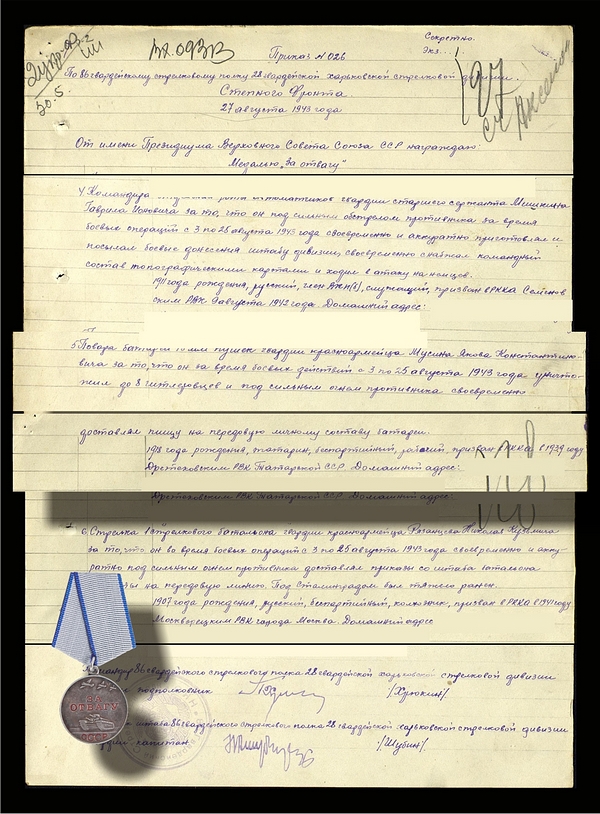 Секретно.
Экз...1.
вх. 093в
Приказ N 026
По 86 гвардейскому стрелковому полку 28 гвардейской харьковской стрелковой дивизии.
Степного Фронта
27 августа 1943 года
От имени Президиума Верховного Совета Союза ССР награждаю:
Медалью „За отвагу"
Командира автоматчиков гвардии старшего сержанта Мишкина
Гаврила за то, что он под сильным обстрелом противника за время
боевых операций с 3 по 25 августа 1943 года своевременно и аккуратно приготовлял и
посылал боевые донесения штабу дивизии, своевременно снабжал командный
состав топографическими картами и ходил в атаку на немцев.
1911 года рождения, русский, служащий, призван в РККА
ским РВК августа 1942 года. Домашний адрес:
5 Повара пушек гвардии красноармейца Мусина Якова Константино-
вича за то, что он за время боевых действий с 3 по 25 августа 1943 года уничто-
жил до 8 гитлеровцев и под сильным огнем противника своевременно
доставлял пищу на передовую личному составу батареи.
1918 года рождения, татарин, беспартийный, рабочий, призван в РККА в 1939 году
РВК Татарской ССР. Домашний адрес:
РВК Татарской ССР. Домашний адрес:
6 Стрелка 1 стрелкового батальона гвардии красноармейца Рязанцева Николая Кузьмича
за то, что он во время боевых операций с 3 по 25 августа 1943 года своевременно и акку-
ратно под сильным огнем противника доставлял приказы со штаба батальона
на передовую линию. Под Сталинградом был тяжело ранен.
1907 года рождения, русский, беспартийный, колхозник, призван в РККА в 1941 году
Москворецким РВК города Москва. Домашний адрес
86 гвардейского стрелкового полка 28 гвардейской харьковской стрелковой дивизии
подполковник /Хрюкин/
штаба 86 гвардейского стрелкового полка 28 гвардейской харьковской стрелковой дивизии
капитан /Шубин/.
ЗА
ОТВАГУ
СССР